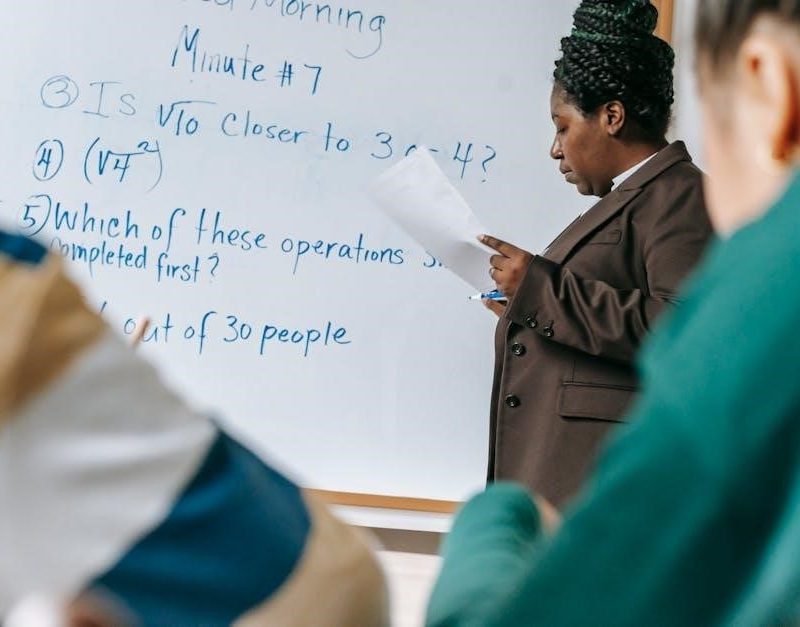 Morning
Minute #7
③ Is √10 Closer to 3 or 4?
④ (√4²)
5) Which of these operations
Completed first?
out of 30 people